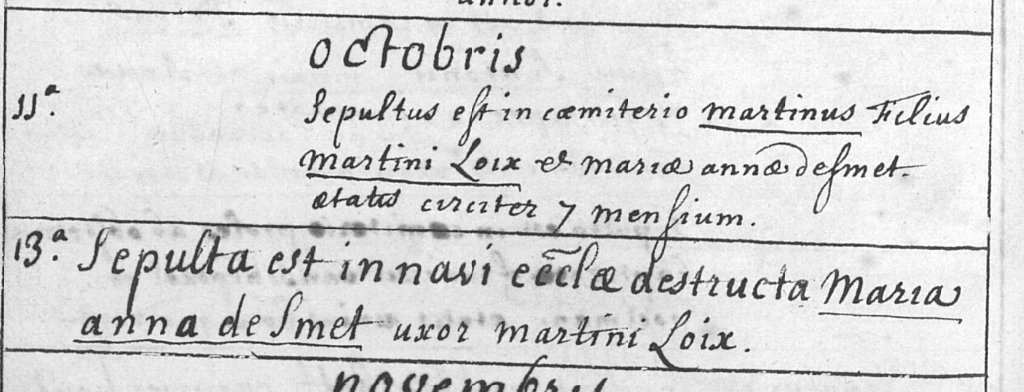 annor.
octobris
11ª. Sepultus est in cœmiterio martinus Filius
martini Loix et mariæ annæ desmet.
ætatis circiter 7 mensium.
13.ª Sepulta est in navi ecclæ destructa Maria
anna de Smet uxor martini Loix.
novembris